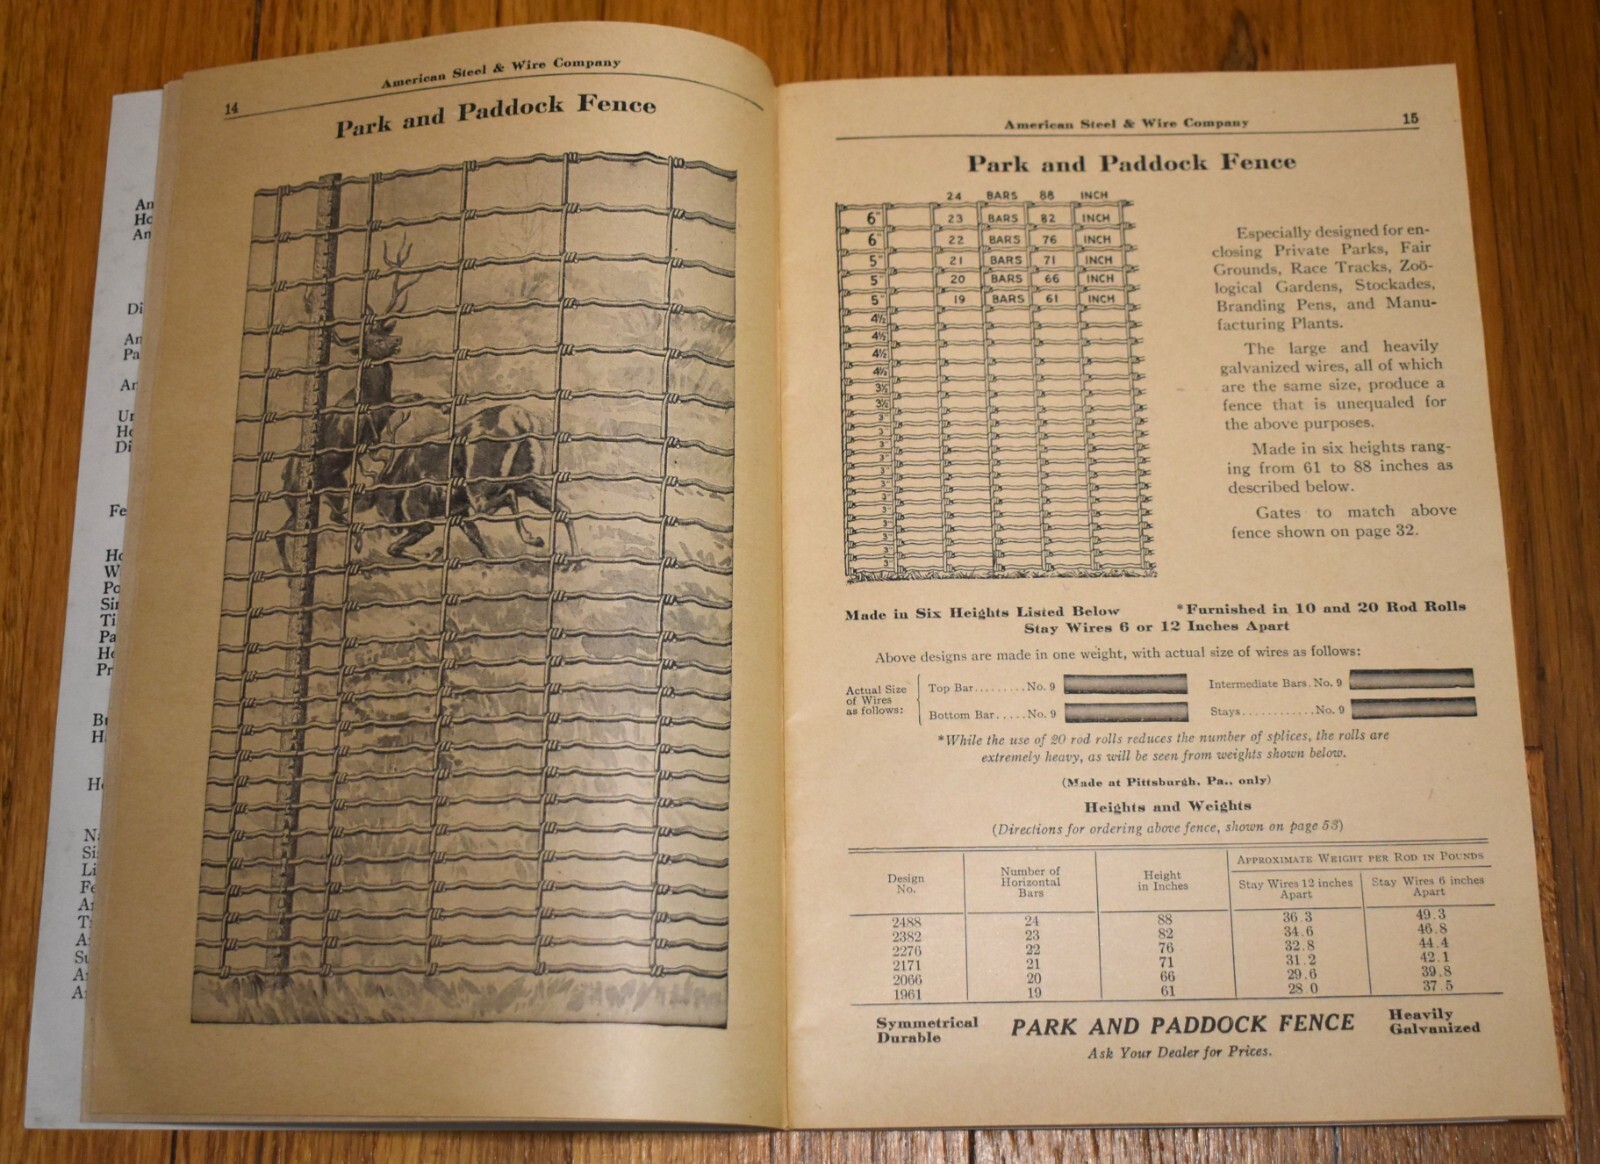 An
Ho
An
Di
An
Pa
An
Un
Ho
Di
Fe
Ho
W
Po
Sin
Ti
Pa
He
Pr
Bu
H
Ho
Na
Si
Li
Fe
A
T
A
Su
A
A
14
American Steel & Wire Company
Park and Paddock Fence
American Steel & Wire Company 15
Park and Paddock Fence
24 BARS 88 INCH
6" 23 BARS 82 INCH
6" 22 BARS 76 INCH
5" 21 BARS 71 INCH
5" 20 BARS 66 INCH
5" 19 BARS 61 INCH
4½
4½
4½
4½
3½
3½
3
3
3
3
3
3
3
3
3
3
3
3
Especially designed for en-
closing Private Parks, Fair
Grounds, Race Tracks, Zoö-
logical Gardens, Stockades,
Branding Pens, and Manu-
facturing Plants.
The large and heavily
galvanized wires, all of which
are the same size, produce a
fence that is unequaled for
the above purposes.
Made in six heights rang-
ing from 61 to 88 inches as
described below.
Gates to match above
fence shown on page 32.
Made in Six Heights Listed Below *Furnished in 10 and 20 Rod Rolls
Stay Wires 6 or 12 Inches Apart
Above designs are made in one weight, with actual size of wires as follows:
Actual Size
of Wires
as follows:
Top Bar.........No. 9
Intermediate Bars. No. 9
Bottom Bar.....No. 9
Stays............No. 9
*While the use of 20 rod rolls reduces the number of splices, the rolls are
extremely heavy, as will be seen from weights shown below.
(Made at Pittsburgh, Pa., only)
Heights and Weights
(Directions for ordering above fence, shown on page 53)
Design
No.
Number of
Horizontal
Bars
Height
in Inches
Approximate Weight per Rod in Pounds
Stay Wires 12 inches
Apart
Stay Wires 6 inches
Apart
2488 24 88 36.3 49.3
2382 23 82 34.6 46.8
2276 22 76 32.8 44.4
2171 21 71 31.2 42.1
2066 20 66 29.6 39.8
1961 19 61 28.0 37.5
Symmetrical
Durable
PARK AND PADDOCK FENCE
Heavily
Galvanized
Ask Your Dealer for Prices.